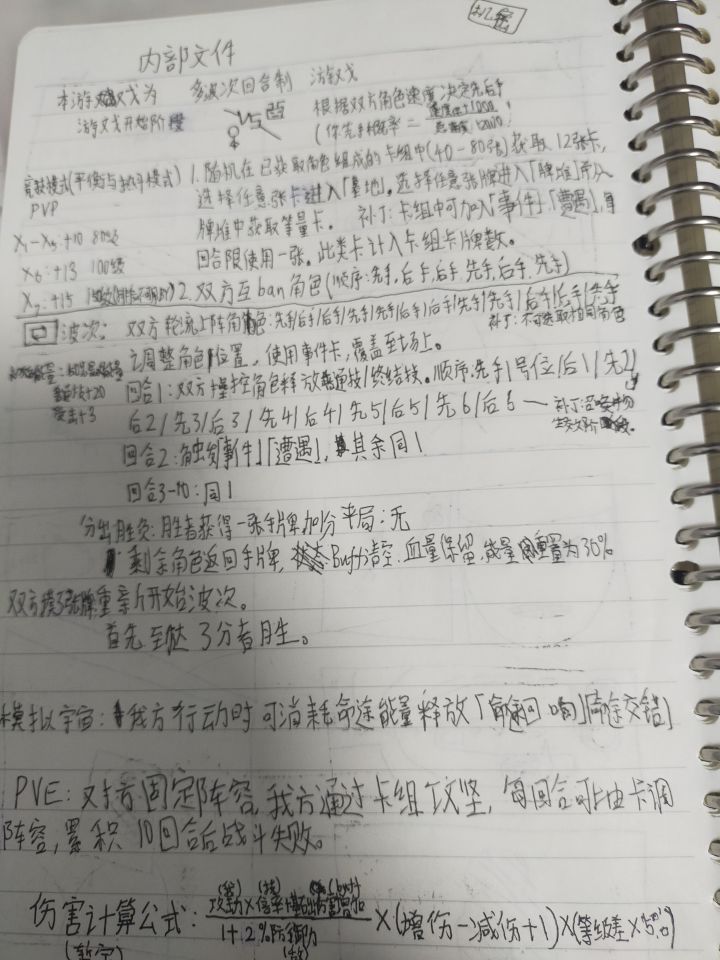 机密
内部文件
本游戏为 多波次回合制 游戏
游戏开始阶段
VS
根据双方角色速度决定先后手
(你先手概率=
竞技模式(平衡与执行模式)
PVP
X₁-X₅:+10 80级
X₆:+13 100级
X₇:+15
1.随机在已获取角色组成的卡组中(40-80张)获取12张卡,
选择任意张卡进入「基地」。选择任意张牌进入「牌堆」并从
牌堆中获取等量卡。 补丁:卡组中可加入「事件」「遭遇」,每
回合限使用一张。此类卡计入卡组卡牌数。
2.双方互ban角色(顺序:先手,后手,后手,先手,后手,先手)
波次: 双方轮流上阵角色:先手/后手/后手/先手/先手/后手/后手/先手/先手/后手/后手/先手
补丁:不可选取相同角色
调整角色位置,使用事件卡,覆盖至场上。
+20
受击+3
回合1:双方操控角色释放普通技/终结技。顺序:先手1号位/后1/先2/
后2/先3/后3/先4/后4/先5/后5/先6/后6
回合2:触发「事件」「遭遇」,其余同1
回合3-10:同1
分出胜负:胜者获得一张手牌加分 平局:无
剩余角色返回手牌,Buff清空.血量保留,能量重置为30%
双方摸3张牌重新开始波次。
首先至达3分者胜。
模拟宇宙:我方行动时可消耗命途能量释放「命途回响」「命途交错」
PVE:对方固定阵容,我方通过卡组攻坚,每回合可抽卡调
阵容,累积10回合后战斗失败。
伤害计算公式:
1+.2%防御力
×(增伤-减伤+1)×(等级差×
(暂定)